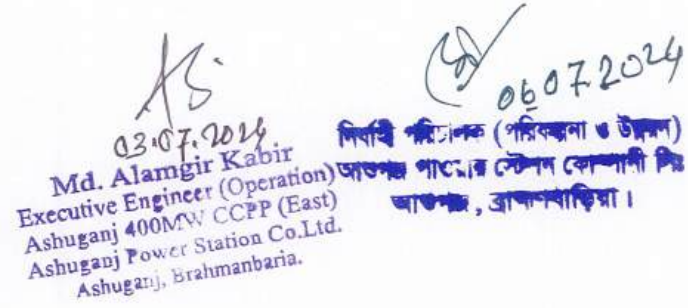 03.07.2024
Md. Alamgir Kabir
Executive Engineer (Operation)
Ashuganj 400MW CCPP (East)
Ashuganj Power Station Co.Ltd.
Ashuganj, Brahmanbaria.
06 07 2024
নির্বাহী পরিচালক (পরিকল্পনা ও উন্নয়ন)
আশুগঞ্জ পাওয়ার স্টেশন কোম্পানী লিঃ
আশুগঞ্জ, ব্রাহ্মণবাড়িয়া।